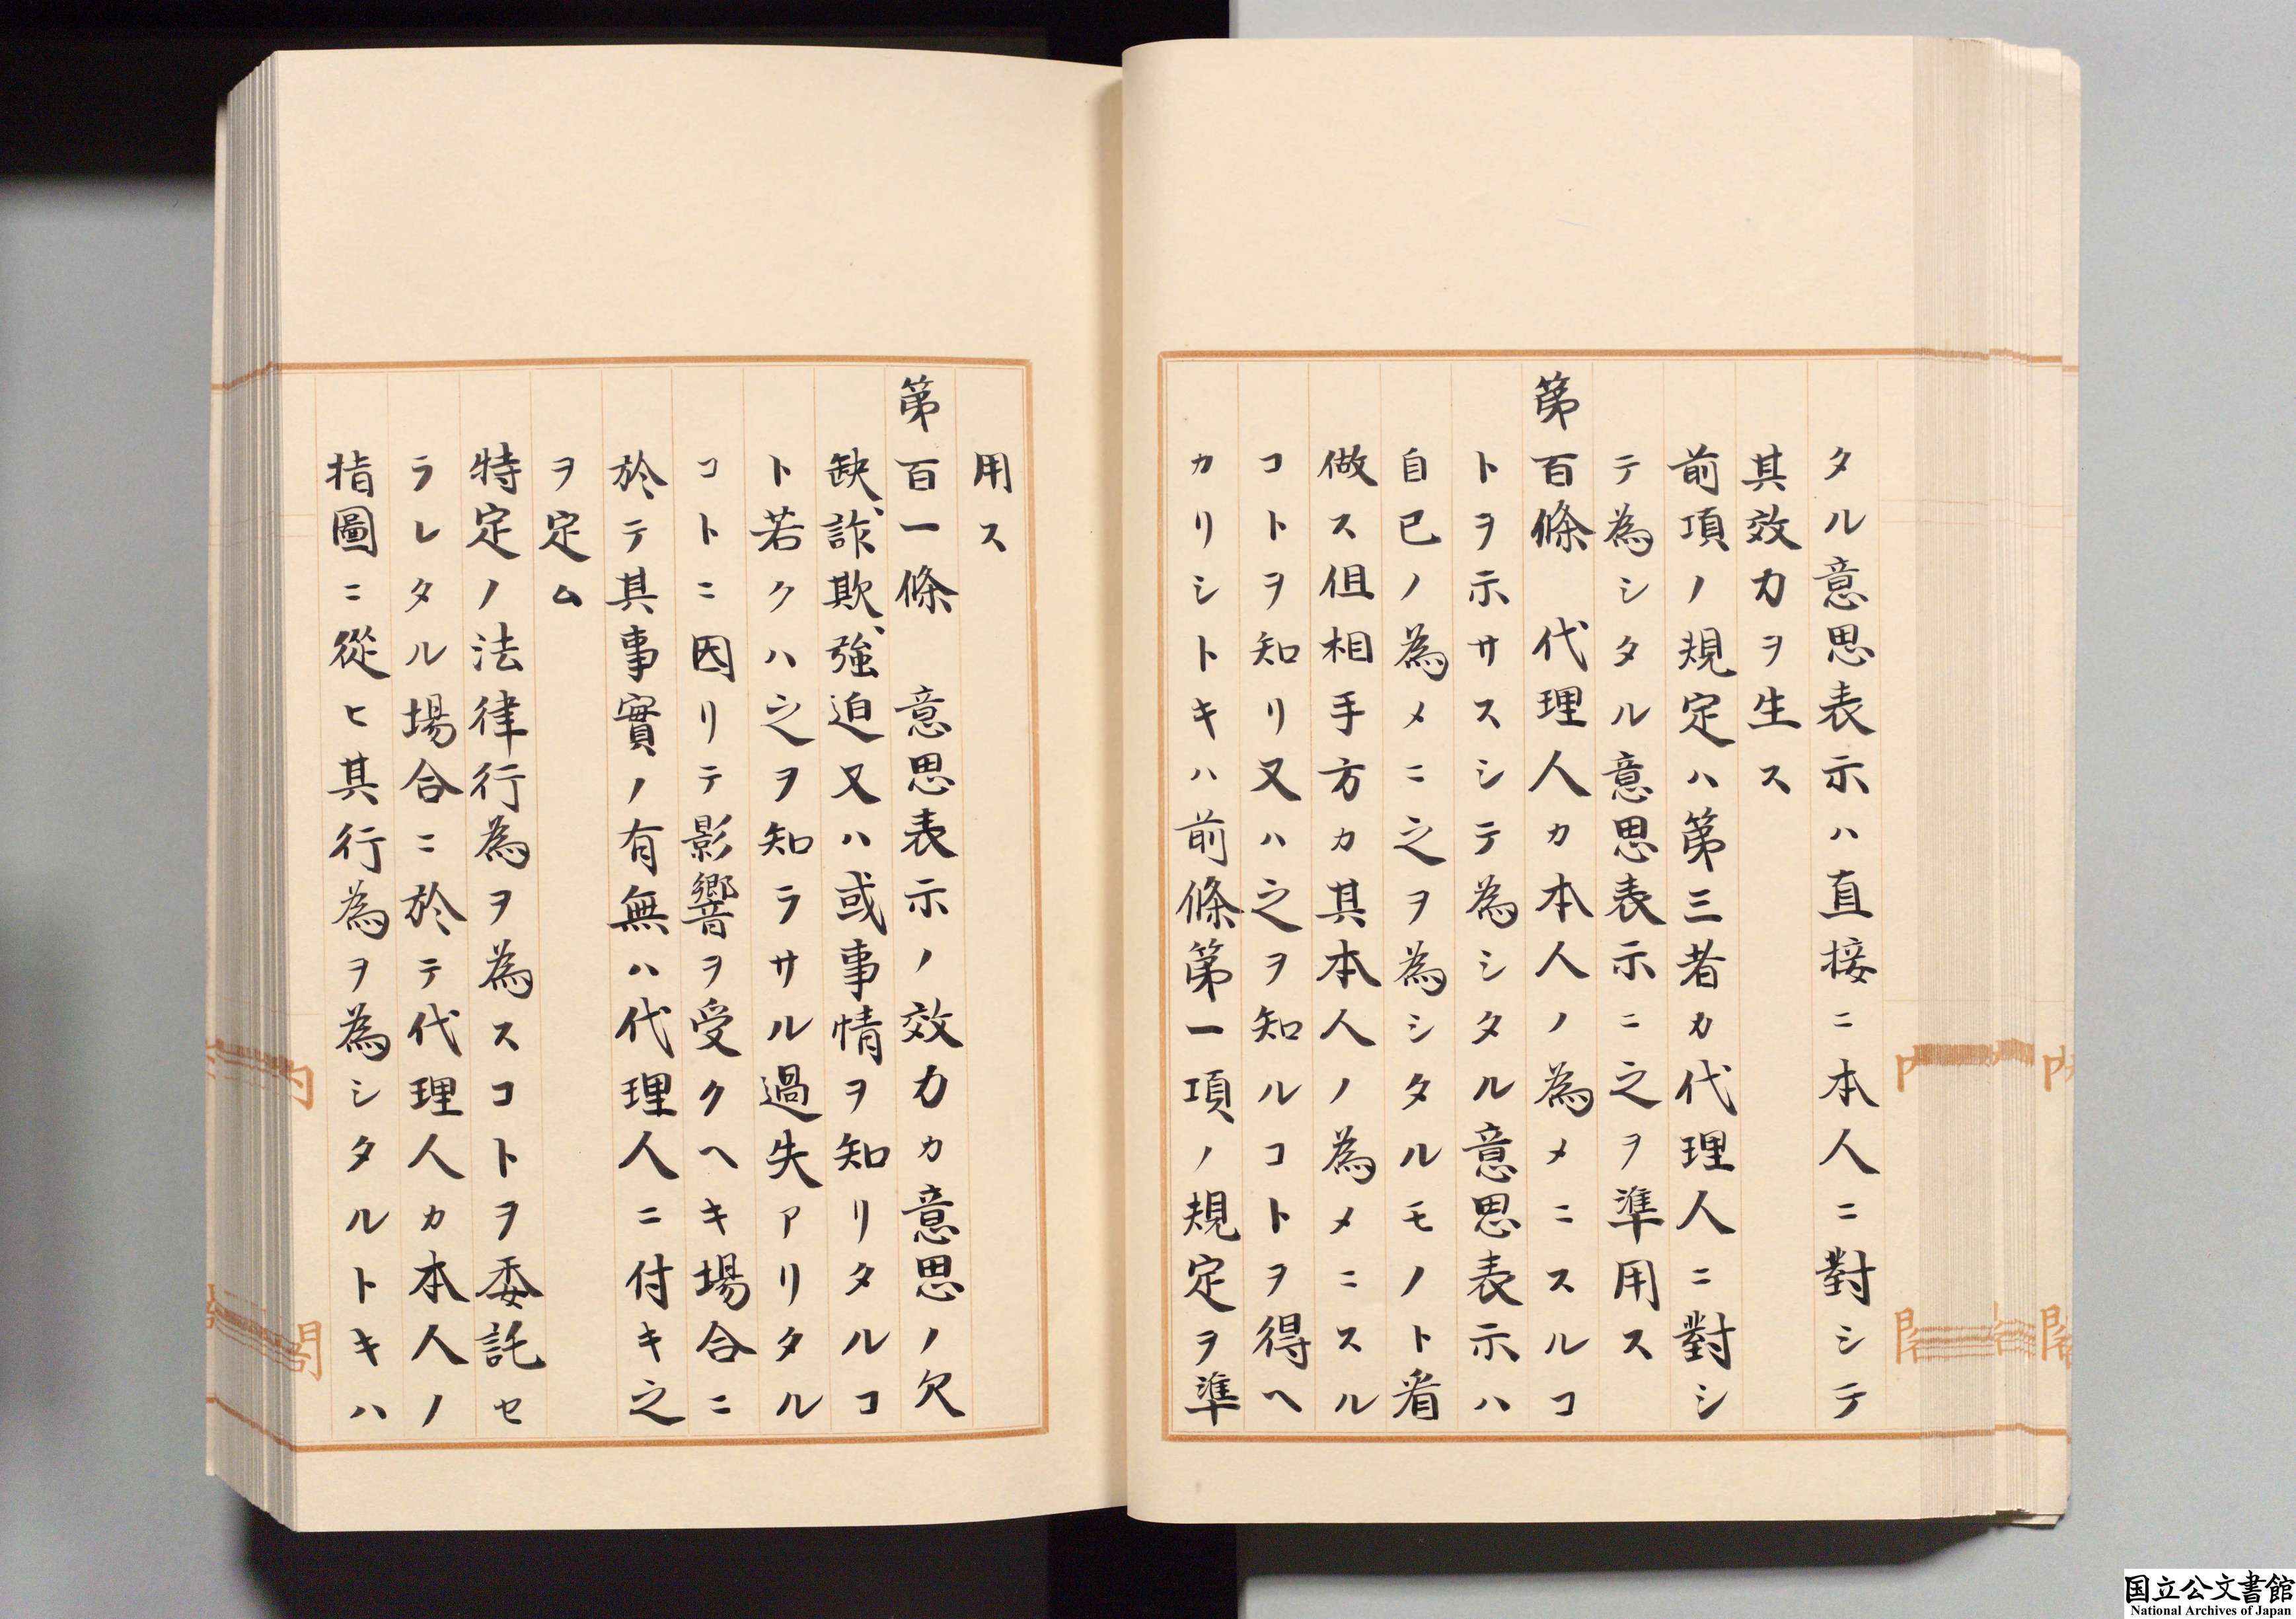 タル意思表示ハ直接ニ本人ニ對シテ
其效力ヲ生ス
前項ノ規定ハ第三者カ代理人ニ對シ
テ為シタル意思表示ニ之ヲ準用ス
第百條　代理人カ本人ノ為メニスルコ
トヲ示サスシテ為シタル意思表示ハ
自己ノ為メニ之ヲ為シタルモノト看
做ス但相手方カ其本人ノ為メニスル
コトヲ知リ又ハ之ヲ知ルコトヲ得ヘ
カリシトキハ前條第一項ノ規定ヲ準
用ス
第百一條　意思表示ノ效力カ意思ノ欠
缺、詐欺、強迫又ハ或事情ヲ知リタルコ
ト若クハ之ヲ知ラサル過失アリタル
コトニ因リテ影響ヲ受クヘキ場合ニ
於テ其事實ノ有無ハ代理人ニ付キ之
ヲ定ム
特定ノ法律行為ヲ為スコトヲ委託セ
ラレタル場合ニ於テ代理人カ本人ノ
指圖ニ從ヒ其行為ヲ為シタルトキハ
国立公文書館
National Archives of Japan